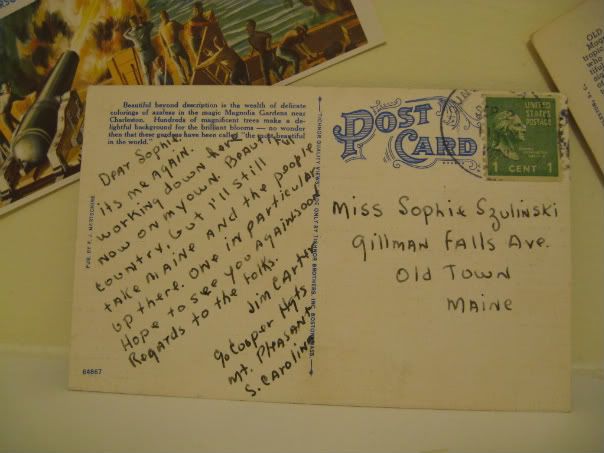 Beautiful beyond description is the wealth of delicate
colorings of azaleas in the magic Magnolia Gardens near
Charleston. Hundreds of magnificent trees make a de-
lightful background for the brilliant blooms — no wonder
then that these gardens have been called "the most beautiful
in the world."
Dear Sophie,
its me again.
working down here
now on my own. Beautiful
country, but I'll still
take maine and the people
up there. one in particular
Hope to see you again soon
Regards to the folks.
Jim Carter
℅ Cooper Hgts
Mt. Pleasant
S. Carolina
PUB. BY F. J.
64867
TICHNOR QUALITY VIEWS, MADE ONLY BY TICHNOR BROTHERS, INC. BOSTON, MASS.
POST
CARD
UNITED
STATES
POSTAGE
1 CENT 1
Miss Sophie Szulinski
Gillman Falls Ave.
Old Town
Maine
OLD
Mag